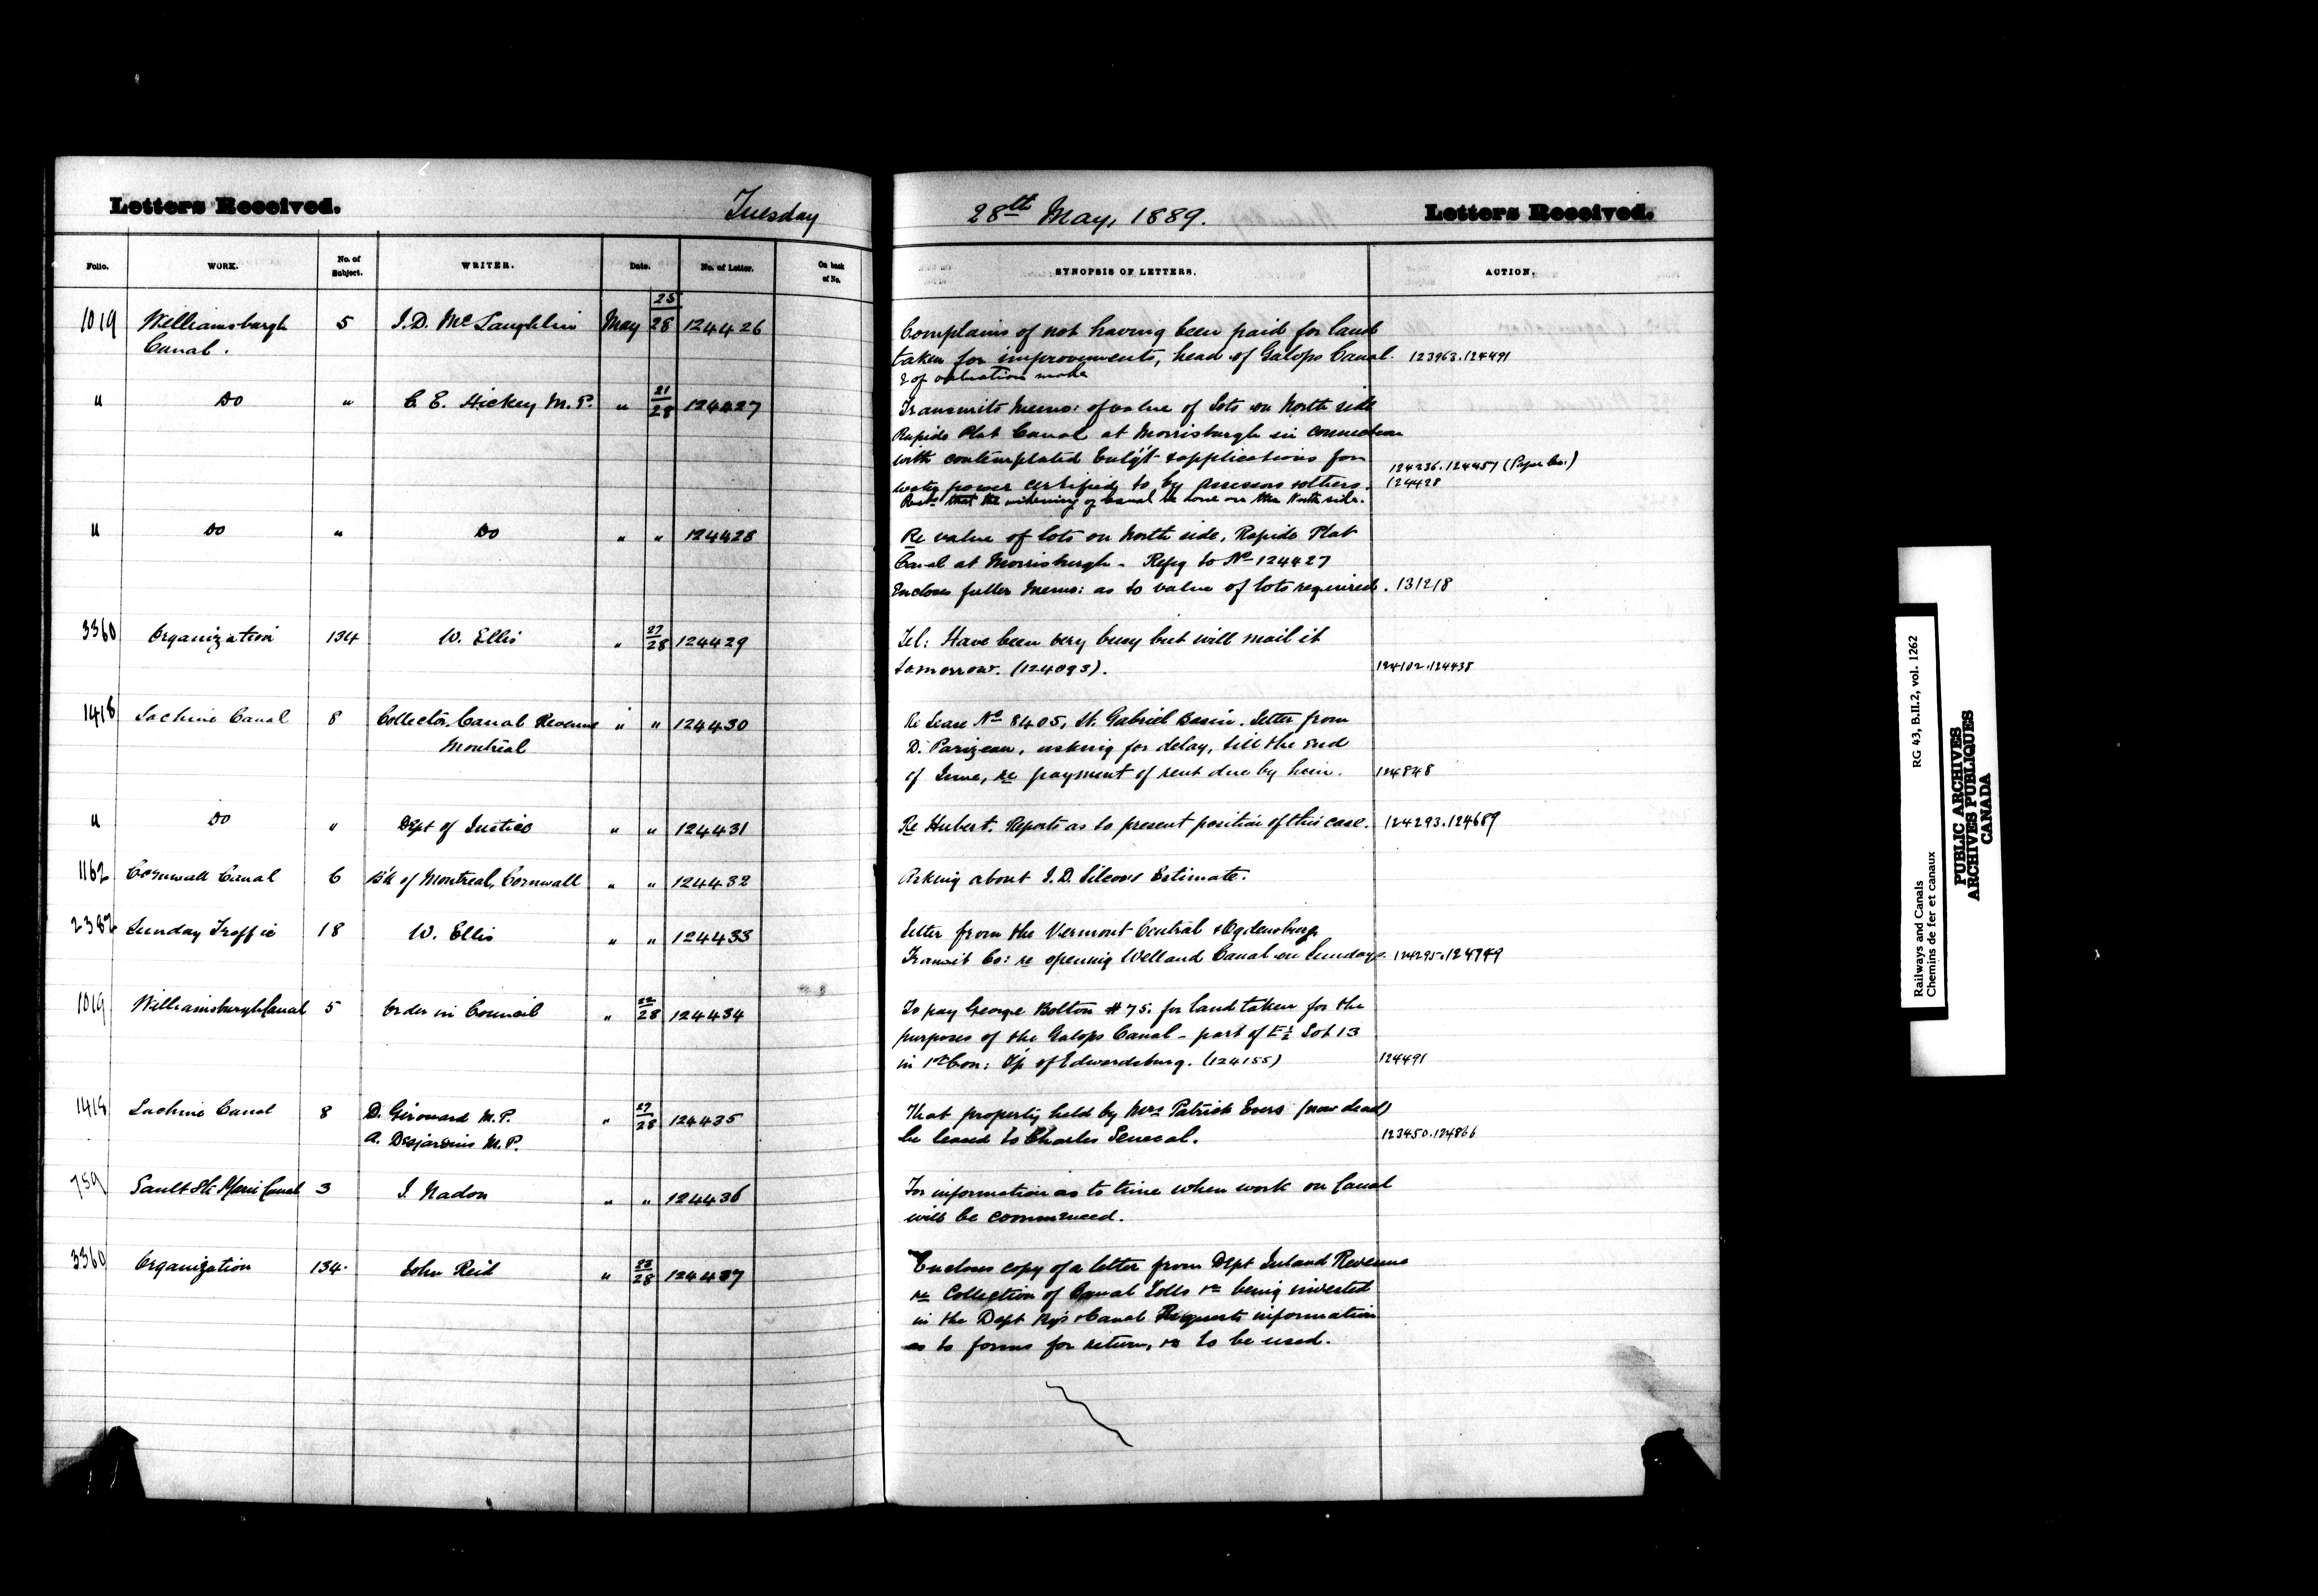 Letters Received. Tuesday
28th May, 1889. Letters Received.
Folio. WORK. No. of Subject. WRITER. Date. No. of Letter. On back of No.
SYNOPSIS OF LETTERS. ACTION.
1019 Williamsburgh 5 J.D. McLaughlin May 25/28 124426
Canal.
Complains of not having been paid for land
taken for improvements, head of Galops Canal. 123963.124491
& of valuation made
" Do " C. E. Hickey M.P. " 21/28 124427
Transmits Memo: of value of lots on North side
Rapide Plat Canal at Morrisburgh in connection
with contemplated Enlgt & applications for
water power certified to by assessors & others. 124236.124457 (Paper Co.)
124428
that the widening of Canal be done on the North side.
" Do " Do " " 124428
Re value of lots on North side, Rapide Plat
Canal at Morrisburgh - Refg to No 124427
Encloses fuller Memo: as to value of lots required. 131218
3360 Organization 134 W. Ellis " 27/28 124429
Tel: Have been very busy but will mail it
tomorrow. (124093). 124102.124438
1418 Lachine Canal 8 Collector Canal Revenue " " 124430
Montreal
Re Lease No 8405, St. Gabriel Basin. Letter from
D. Parizeau, asking for delay, till the end
of June, re payment of rent due by him. 124848
" Do " Dept of Justice " " 124431
Re Hubert. Reports as to present position of this case. 124293.124689
1162 Cornwall Canal 6 Bk of Montreal, Cornwall " " 124432
Asking about J.D. Silcox's Estimate.
2382 Sunday Traffic 18 W. Ellis " " 124433
Letter from the Vermont Central & Ogdensburg
Transit Co: re opening Welland Canal on Sundays. 124295.124749
1019 Williamsburgh Canal 5 Order in Council " 22/28 124434
To pay George Bolton $75. for land taken for the
purposes of the Galops Canal - part of E½ Lot 13
in 1st Con: Tp of Edwardsburg. (124155) 124491
1418 Lachine Canal 8 D. Girouard M.P. " 27/28 124435
A. Desjardins M.P.
That property held by Mrs Patrick Evers (now dead)
be leased to Charles Senecal. 123450.124866
759 Sault Ste Marie Canal 3 J. Nadon " " 124436
For information as to time when work on Canal
will be commenced.
3360 Organization 134. John Reid " 23/28 124437
Encloses copy of a letter from Dept Inland Revenue
re Collection of Canal Tolls &c being invested
in the Dept Rys & Canals Requests information
as to forms for return, &c to be used.
Railways and Canals RG 43, B.II.2, vol. 1262
Chemins de fer et canaux
PUBLIC ARCHIVES
ARCHIVES PUBLIQUES
CANADA